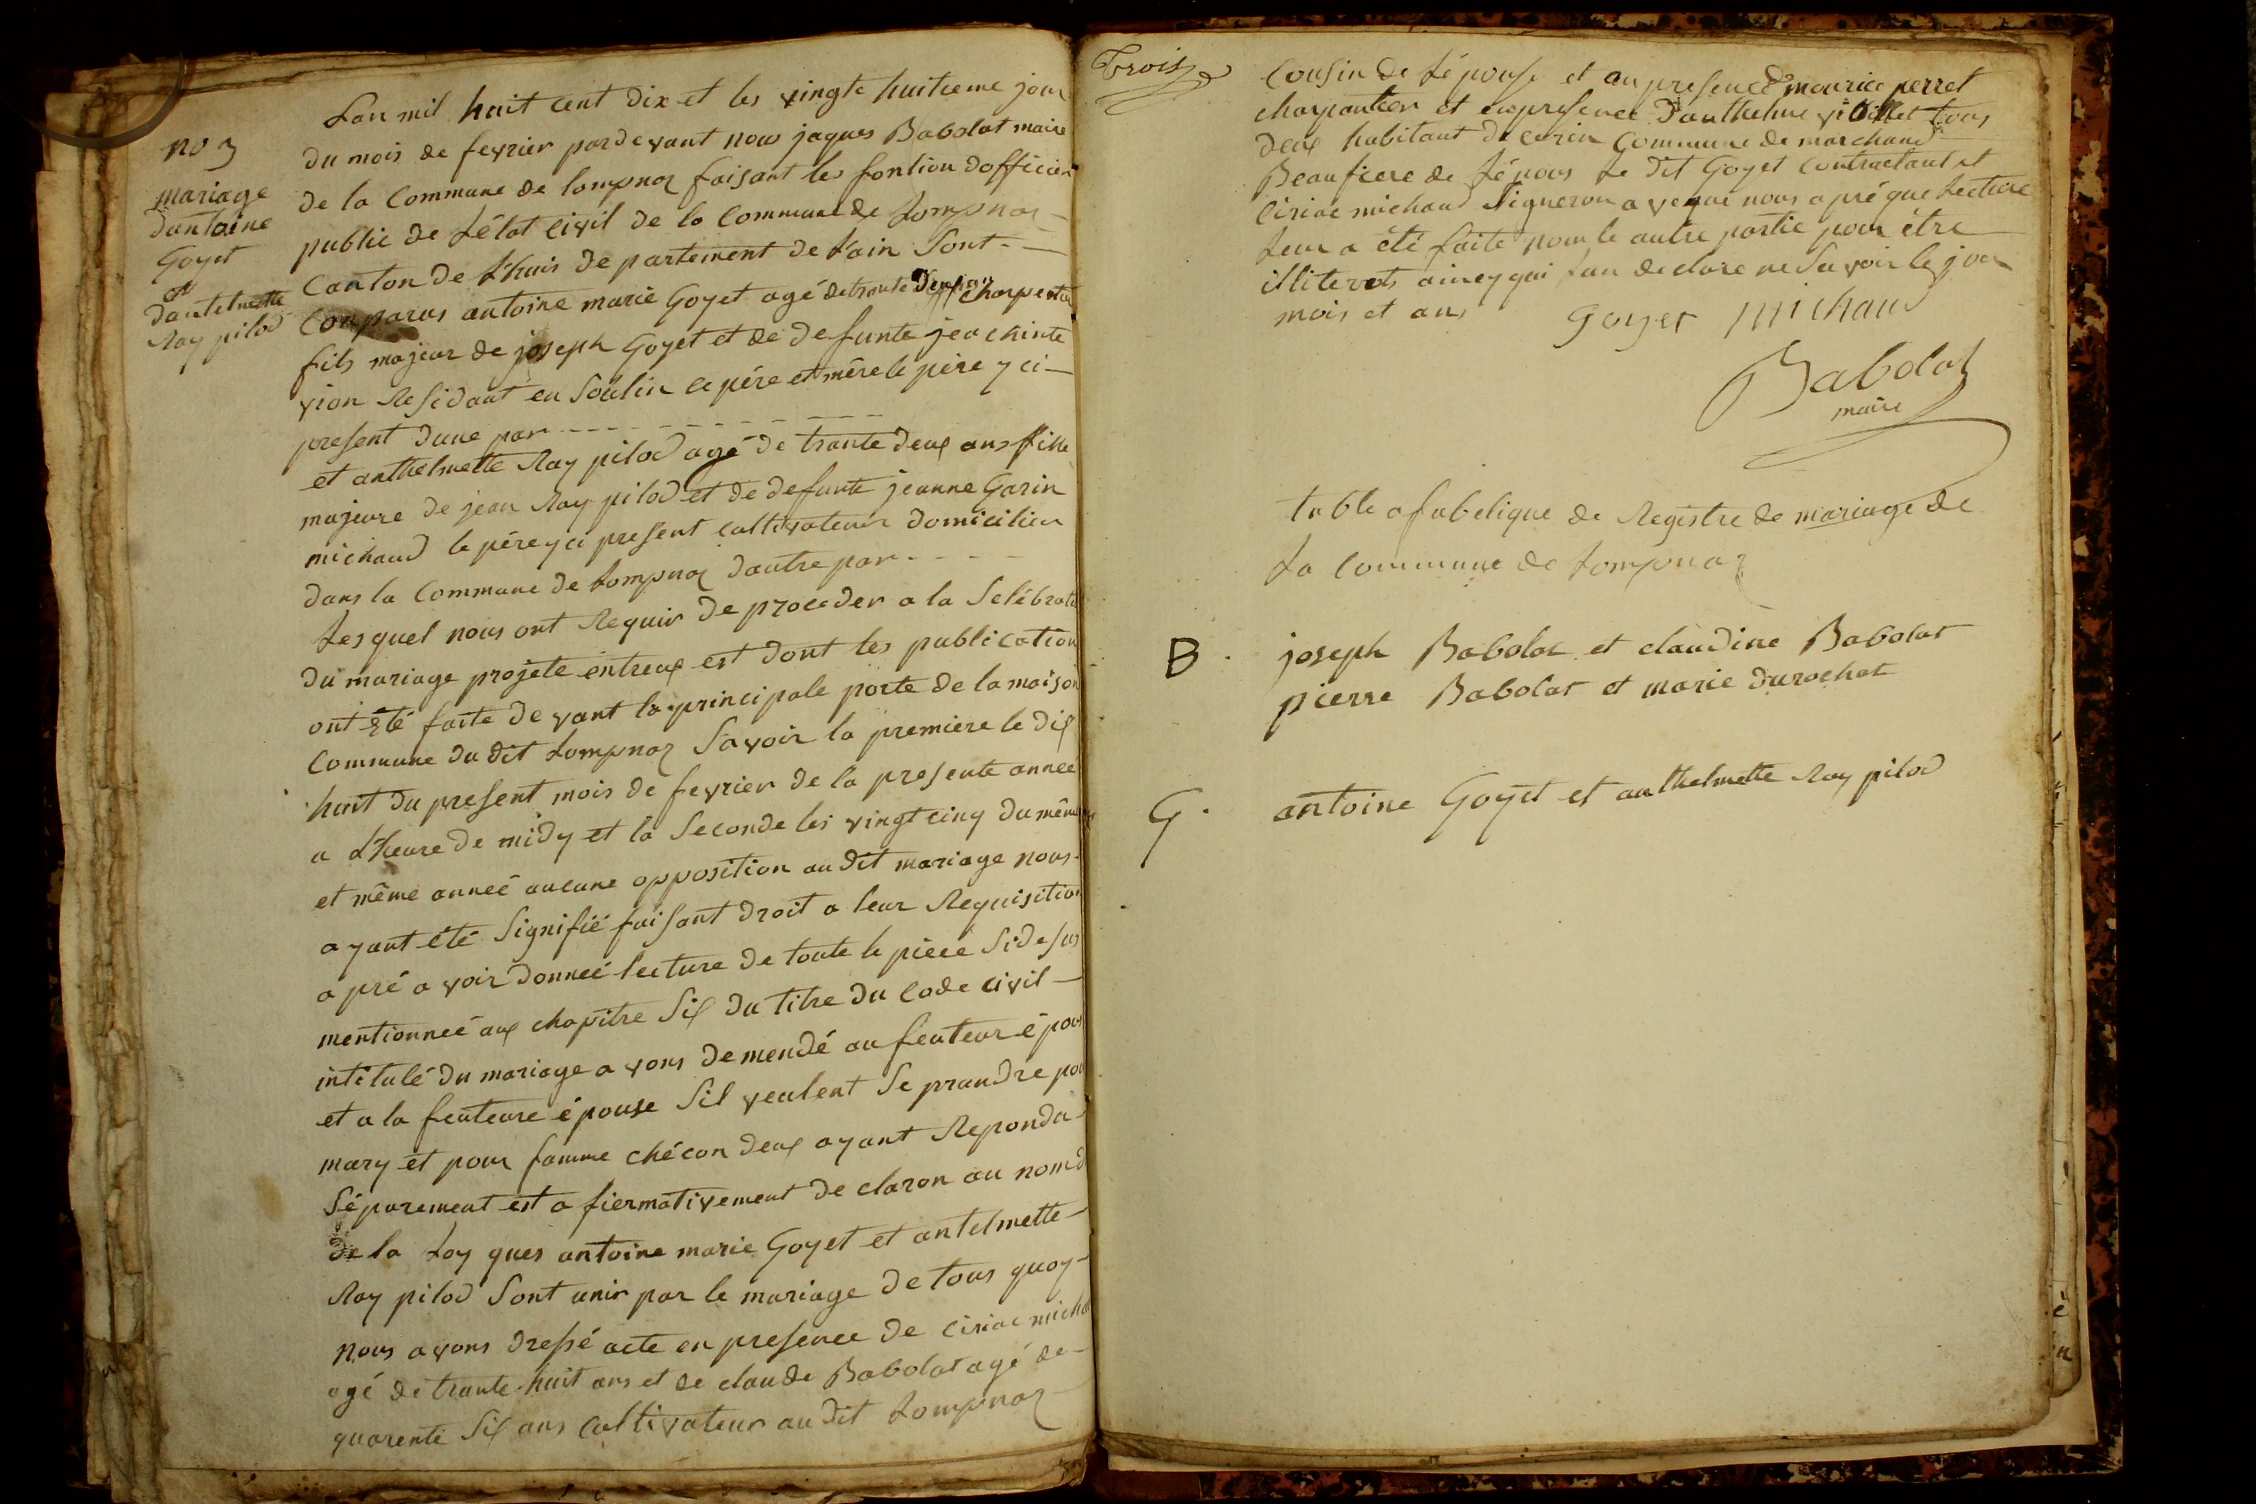 no 3
mariage
dantoine
Goyet
et
dantelmette
Ray pilod
Lan mil huit cent dix et les vingte huitieme jour
du mois de fevrier pardevant nous jaques Babolat maire
de la commune de lompnaz faisant les fontion dofficier
public de Létat civil de la commune de Lompnaz
Canton de Lhuis departement de Lain Sont
Comparus antoine marie Goyet agé de trante deux ans charpentier
fils majeur de joseph Goyet et de defunte jeachinte
vion Residant en Soulin ce pére et mêre le pére y ci
present dune par
et anthelmette Ray pilod agé de trante deux ans fille
majeure de jean Ray pilod et de defunte jeanne Garin
michaud le pére yci present cultivateur domicilier
dans la Commune de Lompnaz dautre par
Lesquel nous ont Requir de proceder a la Selébrati
du mariage projeté entreux est dont les publication
ont été faite devant la principale porte de la maison
Commune du dit Lompnaz Savoir la premiere le dix
huit du present mois de fevrier de la presente année
a Lheure de midy et la Seconde les vingt cinq du même
et même anneé aucune opposition au dit mariage nous
ayant été Signifié faisant droit a leur Requisition
apré avoir donneé lecture de toute le piéce Sidesus
mentionneé aux chapitre Six du titre du Code civil
intitulé du mariage avons demendé au feuteur épous
et a la feuteure épouse Sil veulent Se prandre pou
mary et pour famme chécon deux ayant Repondu
Séparement est afiermativement declaron au nom d
de la Loy ques antoine marie Goyet et antelmette
Ray pilod Sont unir par le mariage de tous quoy
nous avons dressé acte en presence de ciriac micha
agé de trante huit ans et de claude Babolat agé de
quarente Six ans Cultivateur au dit Lompnaz
Trois
Cousin de Lépouse et an presence de maurice perret
charpantier et en presence Danthelme tous
deux habitant de cerin Commune de marchand
Beaufrere de Lépous Le dit Goyet Contractant et
Ciriac michaud Signeron aveque nous apré que Lecture
Leur a été faite non le autre partie pour être
illiterets aincy qui Lan declaré ne Savoir le jour
mois et ans
Goyet michaud
Babolat
maire
table afabetique de Registre de mariage de
La Commune de Lompnaz
B. joseph Babolat et claudine Babolat
pierre Babolat et marie durochat
G. antoine Goyet et anthelmette Ray pilod